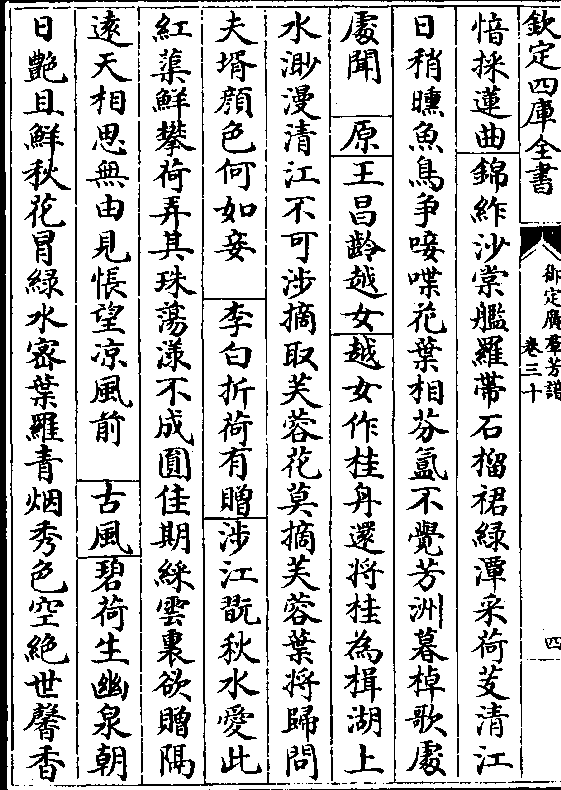 欽定四庫全書
御定廣羣芳譜
卷三十
四
愔採蓮曲錦䋏沙棠艦羅帶石榴裙緑潭采荷芰清江
日稍曛魚鳥争唼喋花葉相芬氲不覺芳洲暮棹歌處
處聞 原王昌齡越女越女作桂舟還將桂為楫湖上
水渺漫清江不可涉摘取芙蓉花莫摘芙蓉葉將歸問
夫壻顔色何如妾 李白折荷有贈涉江翫秋水愛此
紅蕖鮮攀荷弄其珠蕩漾不成圓佳期綵雲裏欲贈隔
逺天相思無由見悵望凉風前 古風碧荷生幽泉朝
日艷且鮮秋花冒緑水宻葉羅青烟秀色空絶世馨香